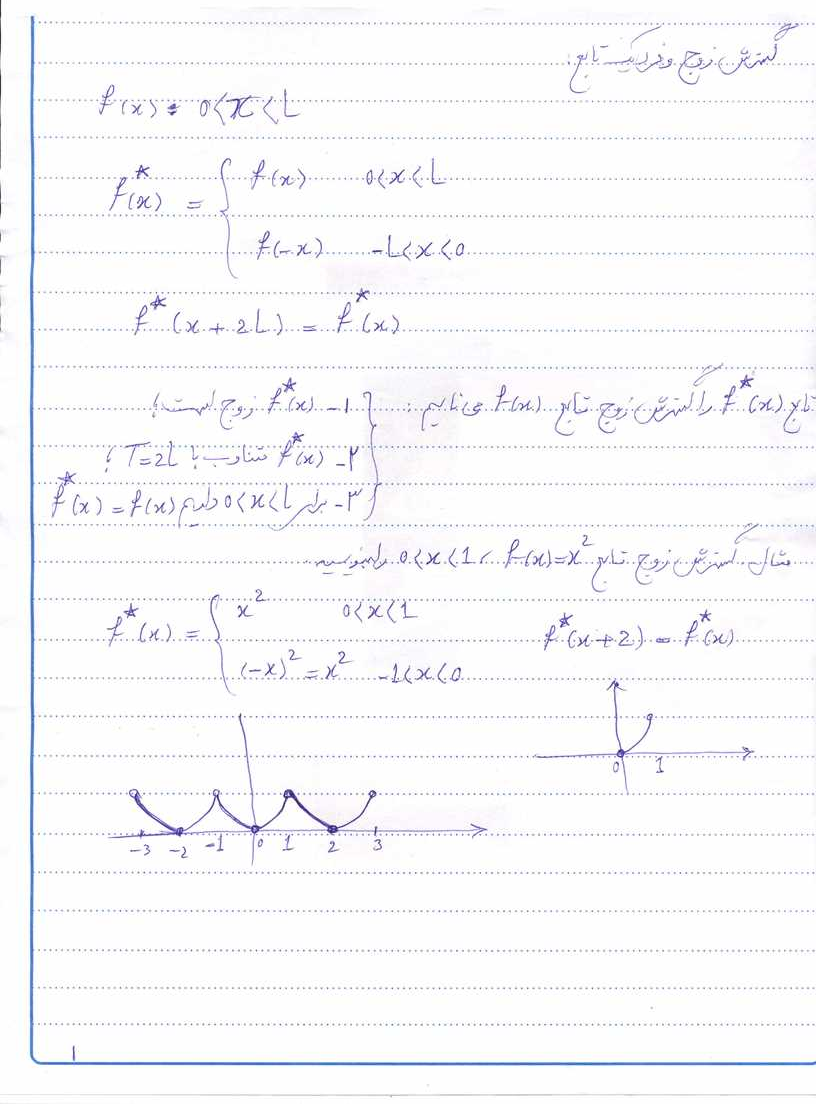 گسترش زوج و فرد یک تابع:
f(x) : 0<x<L
f*(x) = { f(x) 0<x<L
f(-x) -L<x<0
f*(x+2L) = f*(x)
تابع f*(x) را گسترش زوج تابع f(x) می نامیم : { ۱- f*(x) زوج است؛
۲- f*(x) متناوب با T=2L؛
۳- برای 0<x<L داریم f*(x) = f(x)
مثال. گسترش زوج تابع f(x)=x², 0<x<1 را بنویسید.
f*(x) = { x² 0<x<1
(-x)² = x² -1<x<0
f*(x+2) = f*(x)
0 1
-3 -2 -1 0 1 2 3
1